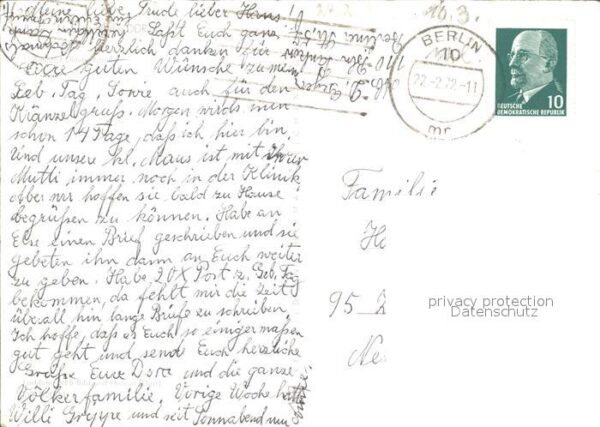 Meine liebe Trude lieber Hans!
Laßt Euch ganz
herzlich danken für
Eure guten Wünsche zu mein
Geb. Tag, sowie auch für den
Kränzelgruß. Morgen wirds nun
schon 14 Tage, daß ich hier bin
Und unsere kl. Maus ist mit ihrer
Mutti immer noch in der Klinik
Aber wir hoffen sie bald zu Hause
begrüßen zu können. Habe an
Else einen Brief geschrieben und sie
gebeten ihn dann an Euch weiter
zu geben. Habe 20 x Post z. Geb. Tag
bekommen, da fehlt mir die Zeit
überall hin lange Briefe zu schreiben.
Ich hoffe, daß es Euch so einigermaßen
gut geht und sende Euch herzliche
Grüße Eure Dora und die ganze
Völkerfamilie. Vorige Woche hatte
Willi Grippe und seit Sonnabend nun
10.3.
BERLIN
10
22.-2.72.-11
DEUTSCHE
DEMOKRATISCHE REPUBLIK
10
Familie
H
95 Z
privacy protection
Datenschutz
Ne